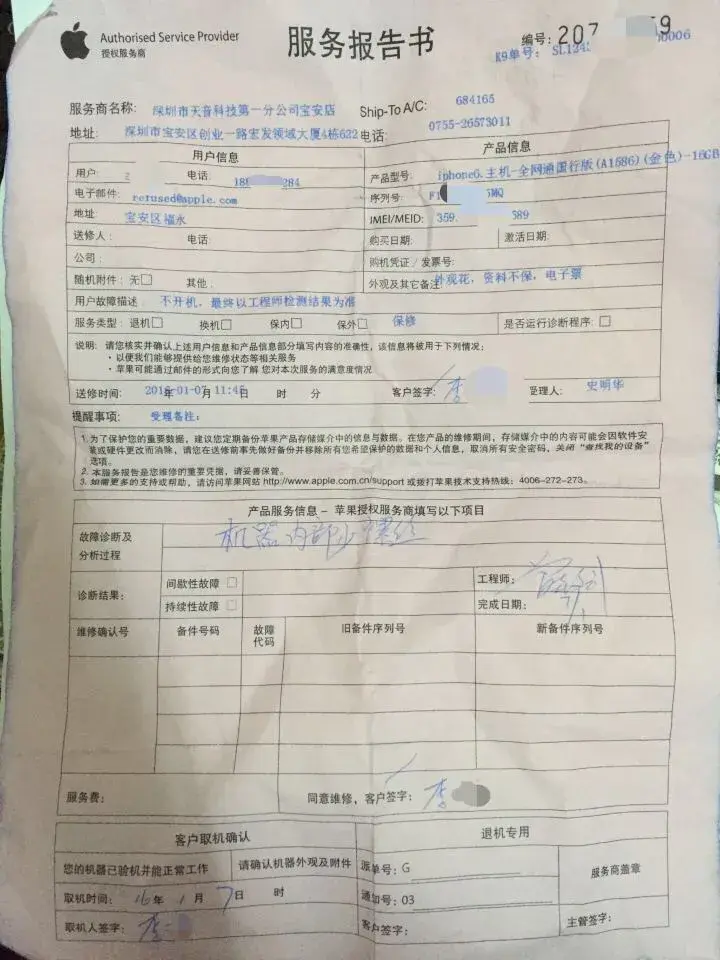 Authorised Service Provider
授权服务商
服务报告书
编号: 207 59
K9单号: SL124 0006
服务商名称: 深圳市天音科技第一分公司宝安店 Ship-To A/C: 684165
地址: 深圳市宝安区创业一路宏发领域大厦4栋622 电话: 0755-26573011
用户信息 产品信息
用户: 电话: 18 284 产品型号: iphone6.主机-全网通国行版(A1586)(金色)-16GB
电子邮件: refused@apple.com 序列号: F1 5MQ
地址: 宝安区福永 JMEI/MEID: 359. 589
送修人: 电话: 购买日期: 激活日期:
公司: 购机凭证/发票号:
随机附件: 无□ 其他: 外观及其它备注: 外观花，资料不保，电子票
用户故障描述: 不开机，最终以工程师检测结果为准
服务类型: 退机□ 换机□ 保内□ 保外□ 保修 是否运行诊断程序: □
说明: 请您核实并确认上述用户信息和产品信息部分填写内容的准确性，该信息将被用于下列情况:
• 以便我们能够提供给您维修状态等相关服务
• 苹果可能通过邮件的形式向您了解 您对本次服务的满意度情况
送修时间: 2016-01-07 11:45 年 月 日 时 分 客户签字: 李 受理人: 史明华
提醒事项: 受理备注:
1. 为了保护您的重要数据，建议您定期备份苹果产品存储媒介中的信息与数据。在您产品的维修期间，存储媒介中的内容可能会因软件安
装或硬件更改而消除，请您在送修前事先做好备份并移除所有您希望保护的数据和个人信息，取消所有安全密码，关闭“查找我的设备”
选项。
2. 本服务报告是您维修的重要凭据，请妥善保管。
3. 如需更多的支持或帮助，请访问苹果网站 http://www.apple.com.cn/support 或拨打苹果技术支持热线: 4006-272-273。
产品服务信息 – 苹果授权服务商填写以下项目
故障诊断及
分析过程
机器内部少螺丝
诊断结果: 间歇性故障 □ 工程师:
持续性故障 □ 完成日期:
维修确认号 备件号码 故障
代码 旧备件序列号 新备件序列号
服务费: 同意维修，客户签字: 李
客户取机确认 退机专用
您的机器已验机并能正常工作 请确认机器外观及附件 派单号: G 服务商盖章
取机时间: 16年 1月 7日 时 通知号: 03
取机人签字: 李 客户签字: 主管签字: